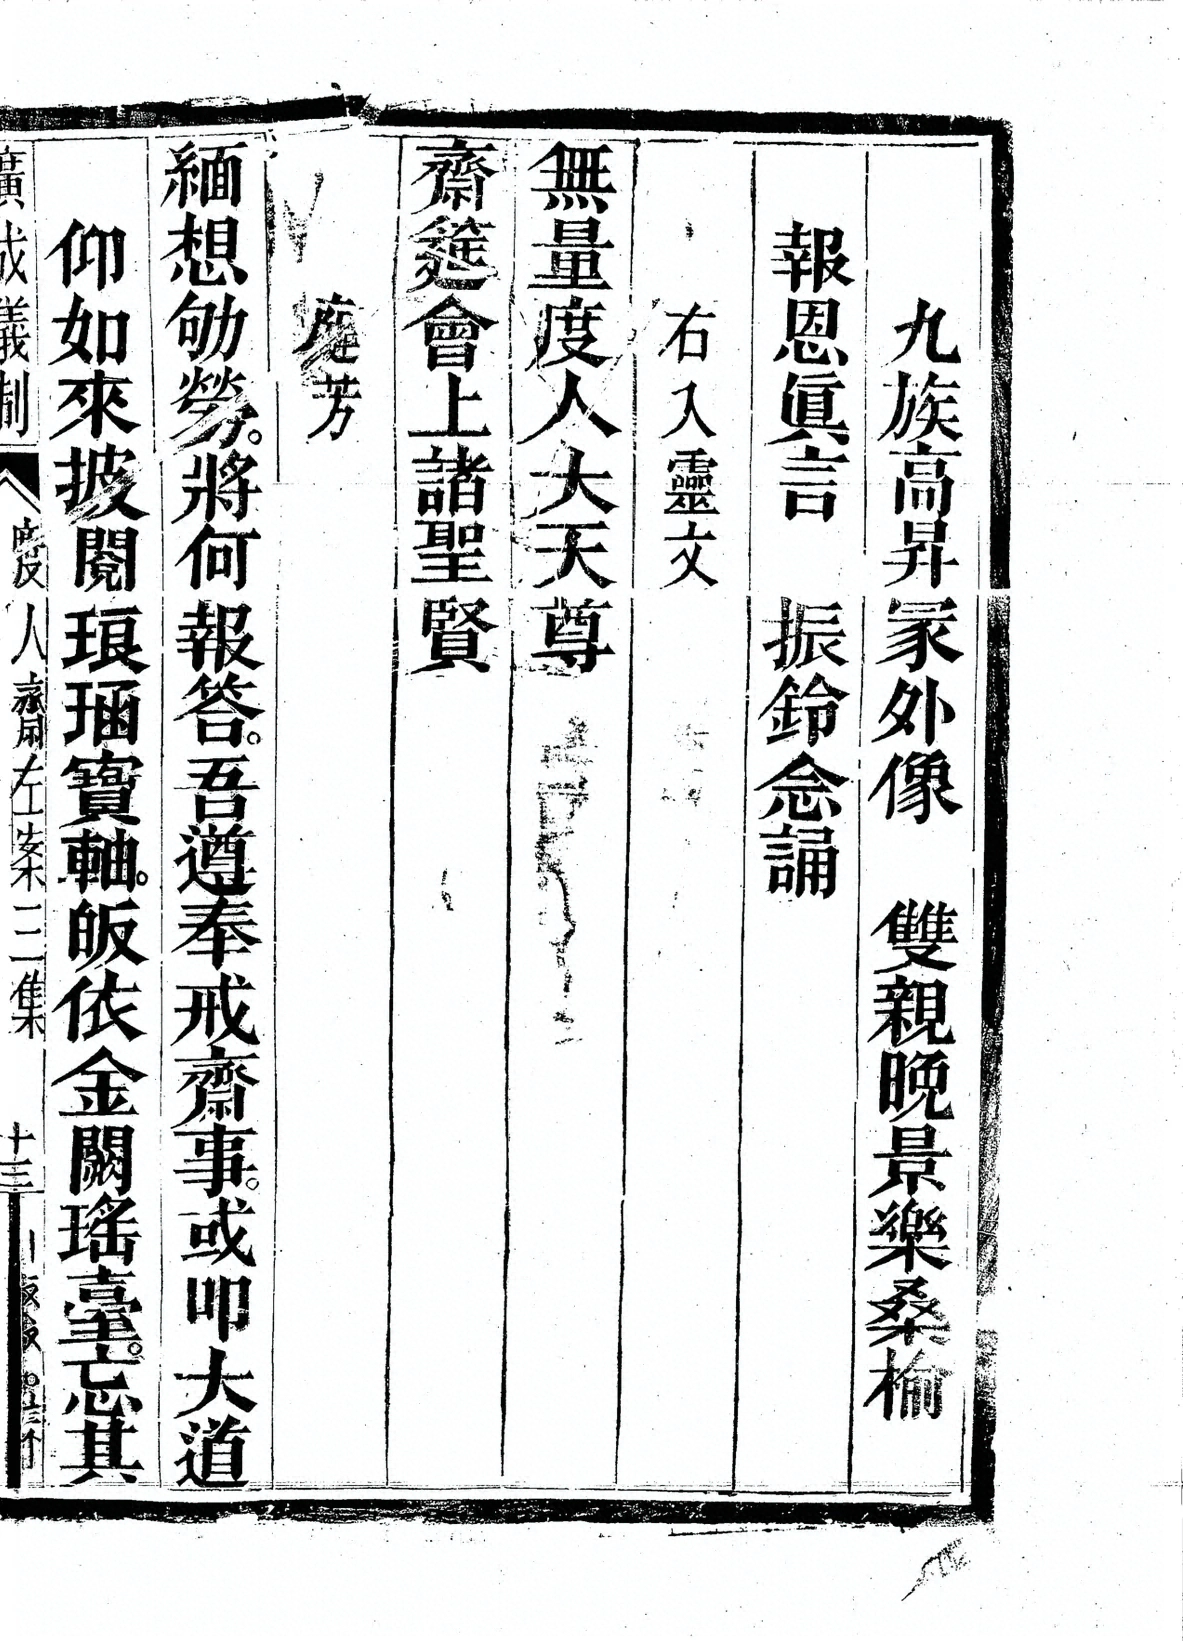 九族高昇冢外像　雙親晚景樂桑榆
報恩眞言　振鈴念誦
右入靈文
無量度人大天尊
齋筵會上諸聖賢
芳
緬想劬勞。將何報答。吾遵奉戒齋事。或叩大道
仰如來披閱琅函寶軸。皈依金闕瑤臺。忘其
廣成儀制　度人齋左案三集　十三